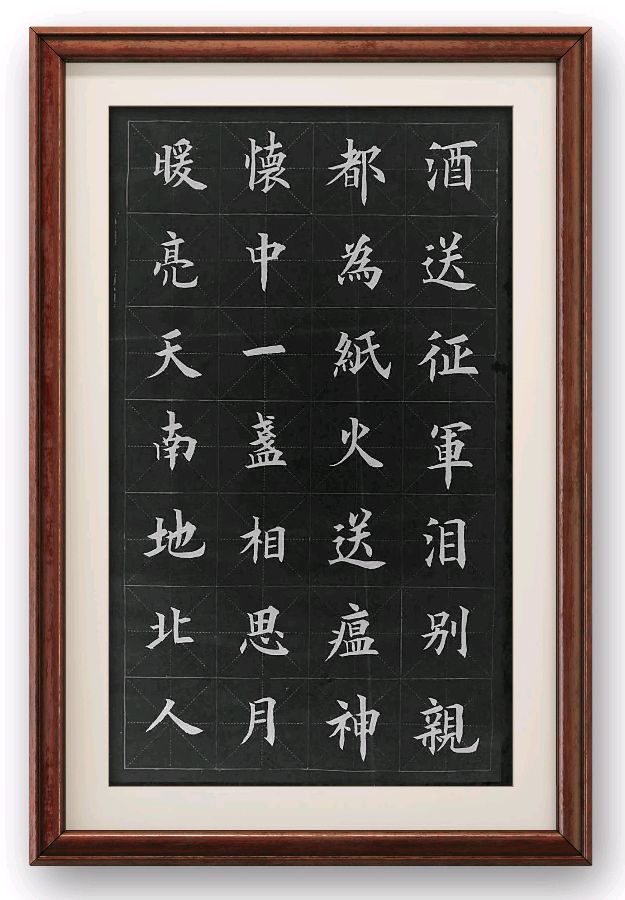 酒送征軍泪别親
都為紙火送瘟神
懐中一盏相思月
暖亮天南地北人